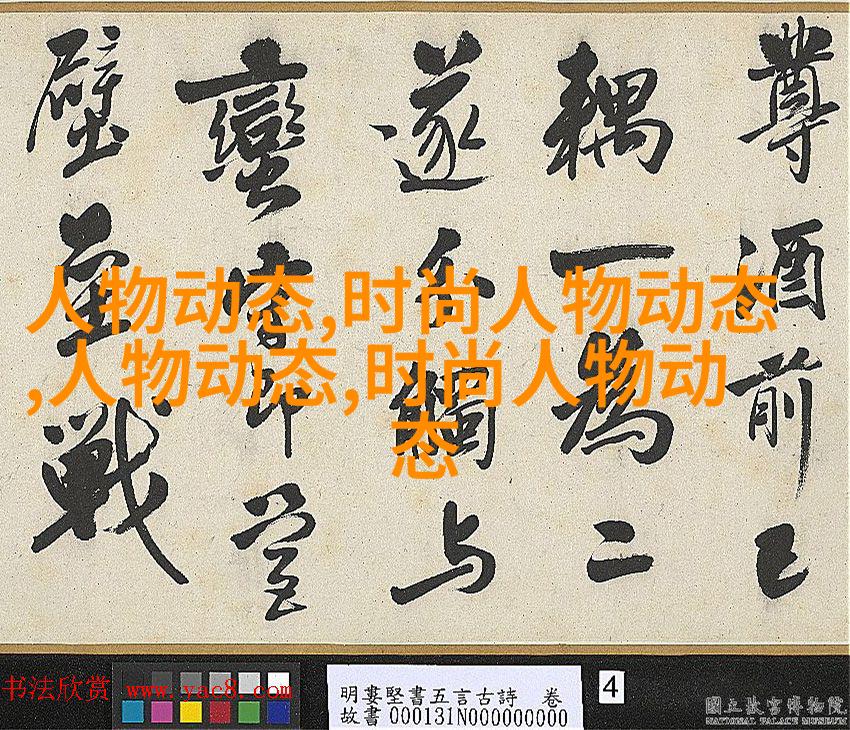 尊酒前已
耦一為二
遂觸与
蠻即營
壁壘戰
人物动态,时尚人物动态
,人物动态,时尚人物动
态
书法欣赏 www.yac8.com
明婁堅書五言古詩 卷
故書000131N000000000
4
國立故宮博物院
NATIONAL PALACE MUSEUM